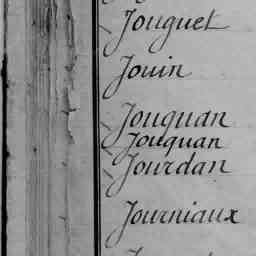 Jouguet
Jouin
Jouquan
Jouquan
Jourdan
Journiaux